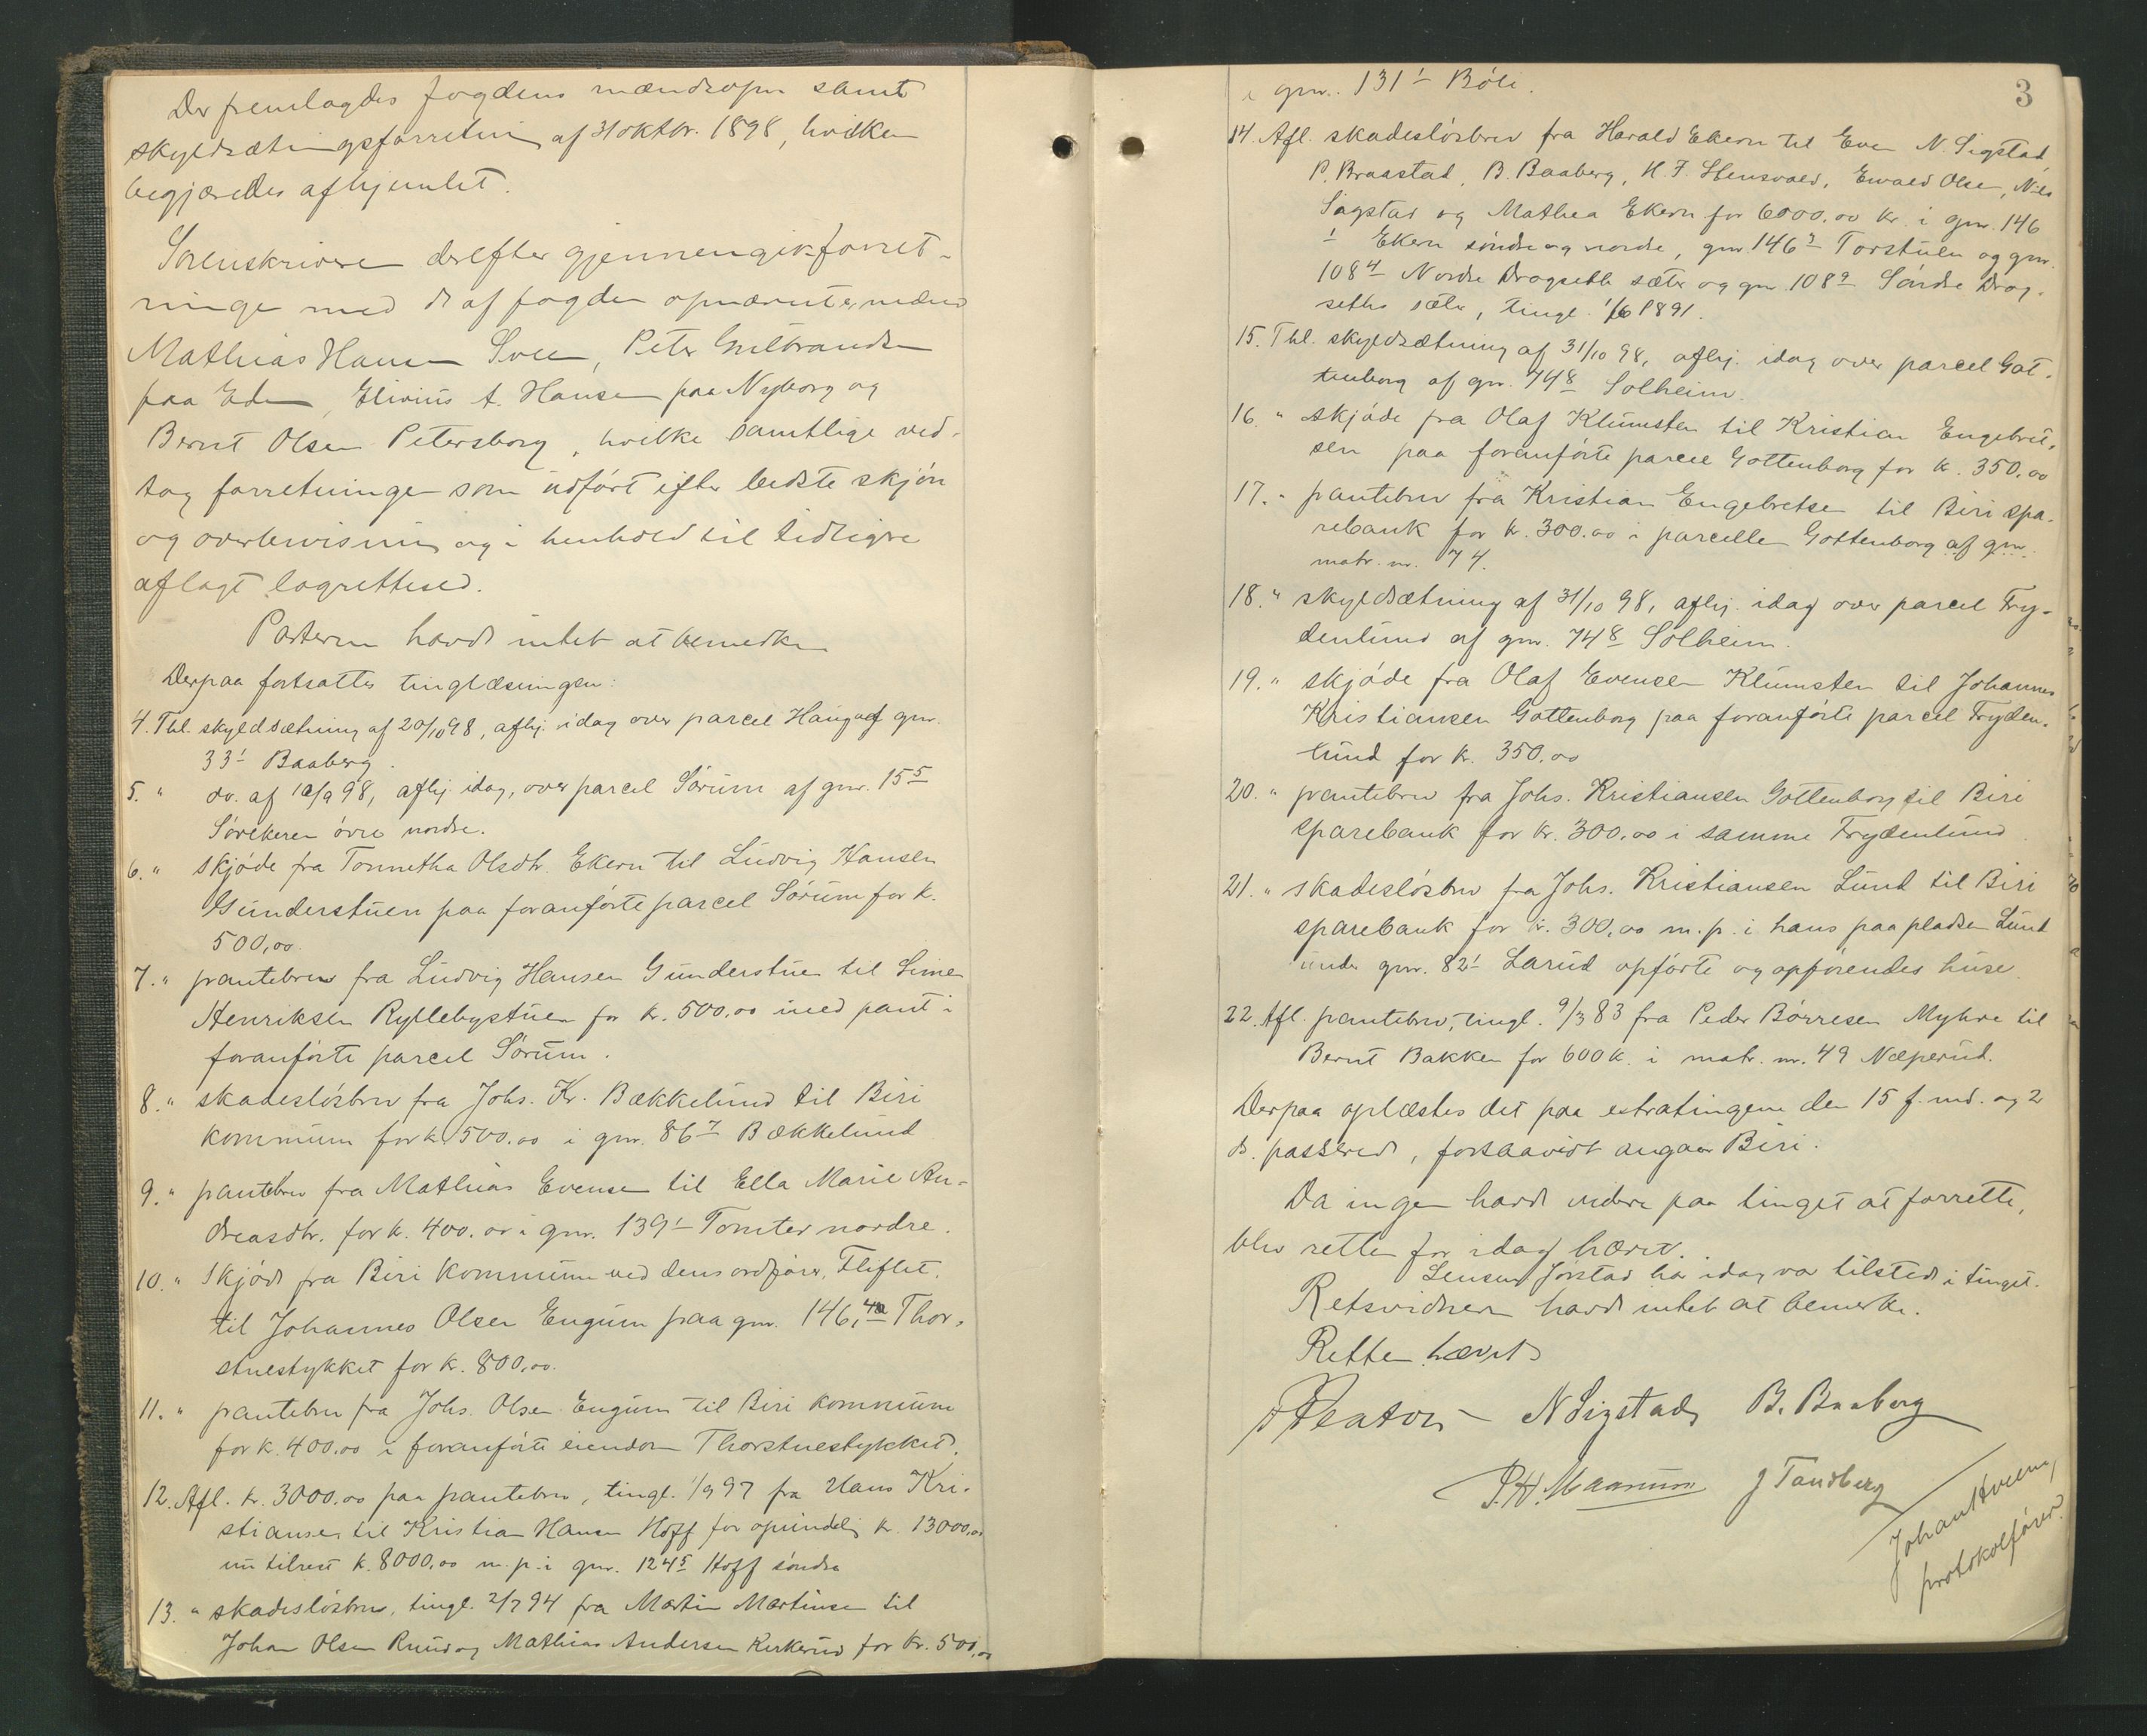 Der fremlagdes fogdens mændsopn samt
skyldsætningsforretnin af 31 oktbr. 1898, hvilken
begjæredes afhjemlet.
Sorenskriveren derefter gjennemgik forret-
ningen med de af fogden opnævnte mænd
Mathias Hansen Sveen, Peter Gulbrandsen
paa Eden, Elivius A. Hansen paa Nyborg og
Bernt Olsen Petersborg, hvilke samtlige ved-
tog forretningen som udført efter bedste skjøn
og overbevisning og i henhold til tidligere
aflagt lagrettesed.
Parterne havde intet at bemerke
Derpaa fortsattes tinglæsningen:
4. Thl. skyldsætning af 20/10 98, afhj. idag over parcel Haug af gnr.
33¹ Baaberg.
5. " do. af 10/9 98, afhj. idag, over parcel Sørum af gnr. 15⁵
Sørekeren øvre nordre.
6. " skjøde fra Tonnetha Olsdtr. Ekern til Ludvig Hansen
Gunderstuen paa foranførte parcel Sørum for k.
500,00.
7. " pantebrev fra Ludvig Hansen Gunderstuen til Simen
Henriksen Ryllebystuen for kr. 500.00 med pant i
foranførte parcel Sørum.
8. " skadesløsbrev fra Johs. Kr. Bækkelund til Biri
kommune for kr 500.00 i gnr. 86⁷ Bækkelund
9. " pantebrev fra Mathias Evensen til Ella Marie An-
dreasdtr. for kr. 400.00 i gnr. 139¹ Tomter nordre.
10. " Skjøde fra Biri kommune ved dens ordfører, Fliflet,
til Johannes Olsen Engum paa gnr. 146,⁴⁰ Thor-
stuestykket for kr. 800,00.
11. " pantebrev fra Johs. Olsen Engum til Biri kommune
for kr. 400.00 i foranførte eiendom Thorstuestykket.
12. Afl. kr. 3000.00 paa pantebrev, tingl. 1/9 97 fra Hans Kri-
stiansen til Kristian Hansen Hoff for oprindelig kr. 13000,00
nu tilrest k. 8000,00 m. p. i gnr. 124⁵ Hoff søndre
13. " skadesløsbrev, tingl. 2/7 94 fra Martin Martinsen til
Johan Olsen Ruud og Mathias Andersen Kirkerud for kr. 500,00
3
i gnr. 131¹ Böle.
14. Afl. skadesløsbrev fra Harald Ekern til Even N. Sigstad,
P. Braastad, B. Baaberg, H. F. Stensvold, Ewald Olsen, Nils
Sigstad og Mathea Ekern for 6000.00 kr. i gnr. 146
¹ Ekern søndre og nordre, gnr. 146³ Torstuen og gnr.
108⁴ Nordre Dragseth sæter og gnr. 108⁹ Søndre Drag-
seths sæter, tingl. 1/6 1891.
15. Thl. skyldsætning af 31/10 98, afhj. idag over parcel Got-
tenborg af gnr. 74⁸ Solheim.
16. " skjøde fra Olaf Klumsten til Kristian Engebret-
sen paa foranførte parcel Gottenborg for k. 350,00
17. " pantebrev fra Kristian Engebretsen til Biri spa-
rebank for kr. 300.00 i parcellen Gottenborg af gnr.
matr. nr. 74.
18. " skyldsætning af 31/10 98, afhj. idag over parcel Fry-
denlund af gnr. 74⁸ Solheim.
19. " skjøde fra Olaf Evensen Klumsten til Johannes
Kristiansen Gottenborg paa foranførte parcel Fryden-
lund for kr. 350,00
20. " pantebrev fra Johs. Kristiansen Gottenborg til Biri
sparebank for kr. 300,00 i samme Frydenlund
21. " skadesløsbrev fra Johs. Kristiansen Lund til Biri
sparebank for kr. 300,00 m. p. i hans paa pladsen Lund
under gnr. 82¹ Larud opførte og opførendes huse.
22. Afl. pantebrev, tingl. 9/3 83 fra Peder Børresen Myhre til
Bernt Bakken for 600 k. i matr. nr. 49 Næperud.
Derpaa oplæstes det paa extratingene den 15 f. md. og 2
ds. passerede, forsaavidt angaar Biri.
Da ingen havde videre paa tinget at forrette,
blev retten for idag hævet.
Lensm. Jørstad har idag var tilstede i tinget.
Retsvidnerne havde intet at bemerke.
Retten hævet
N Sigstad B. Baaberg
P. H. Maanum J Tandberg
Johan Hveem,
protokolfører.